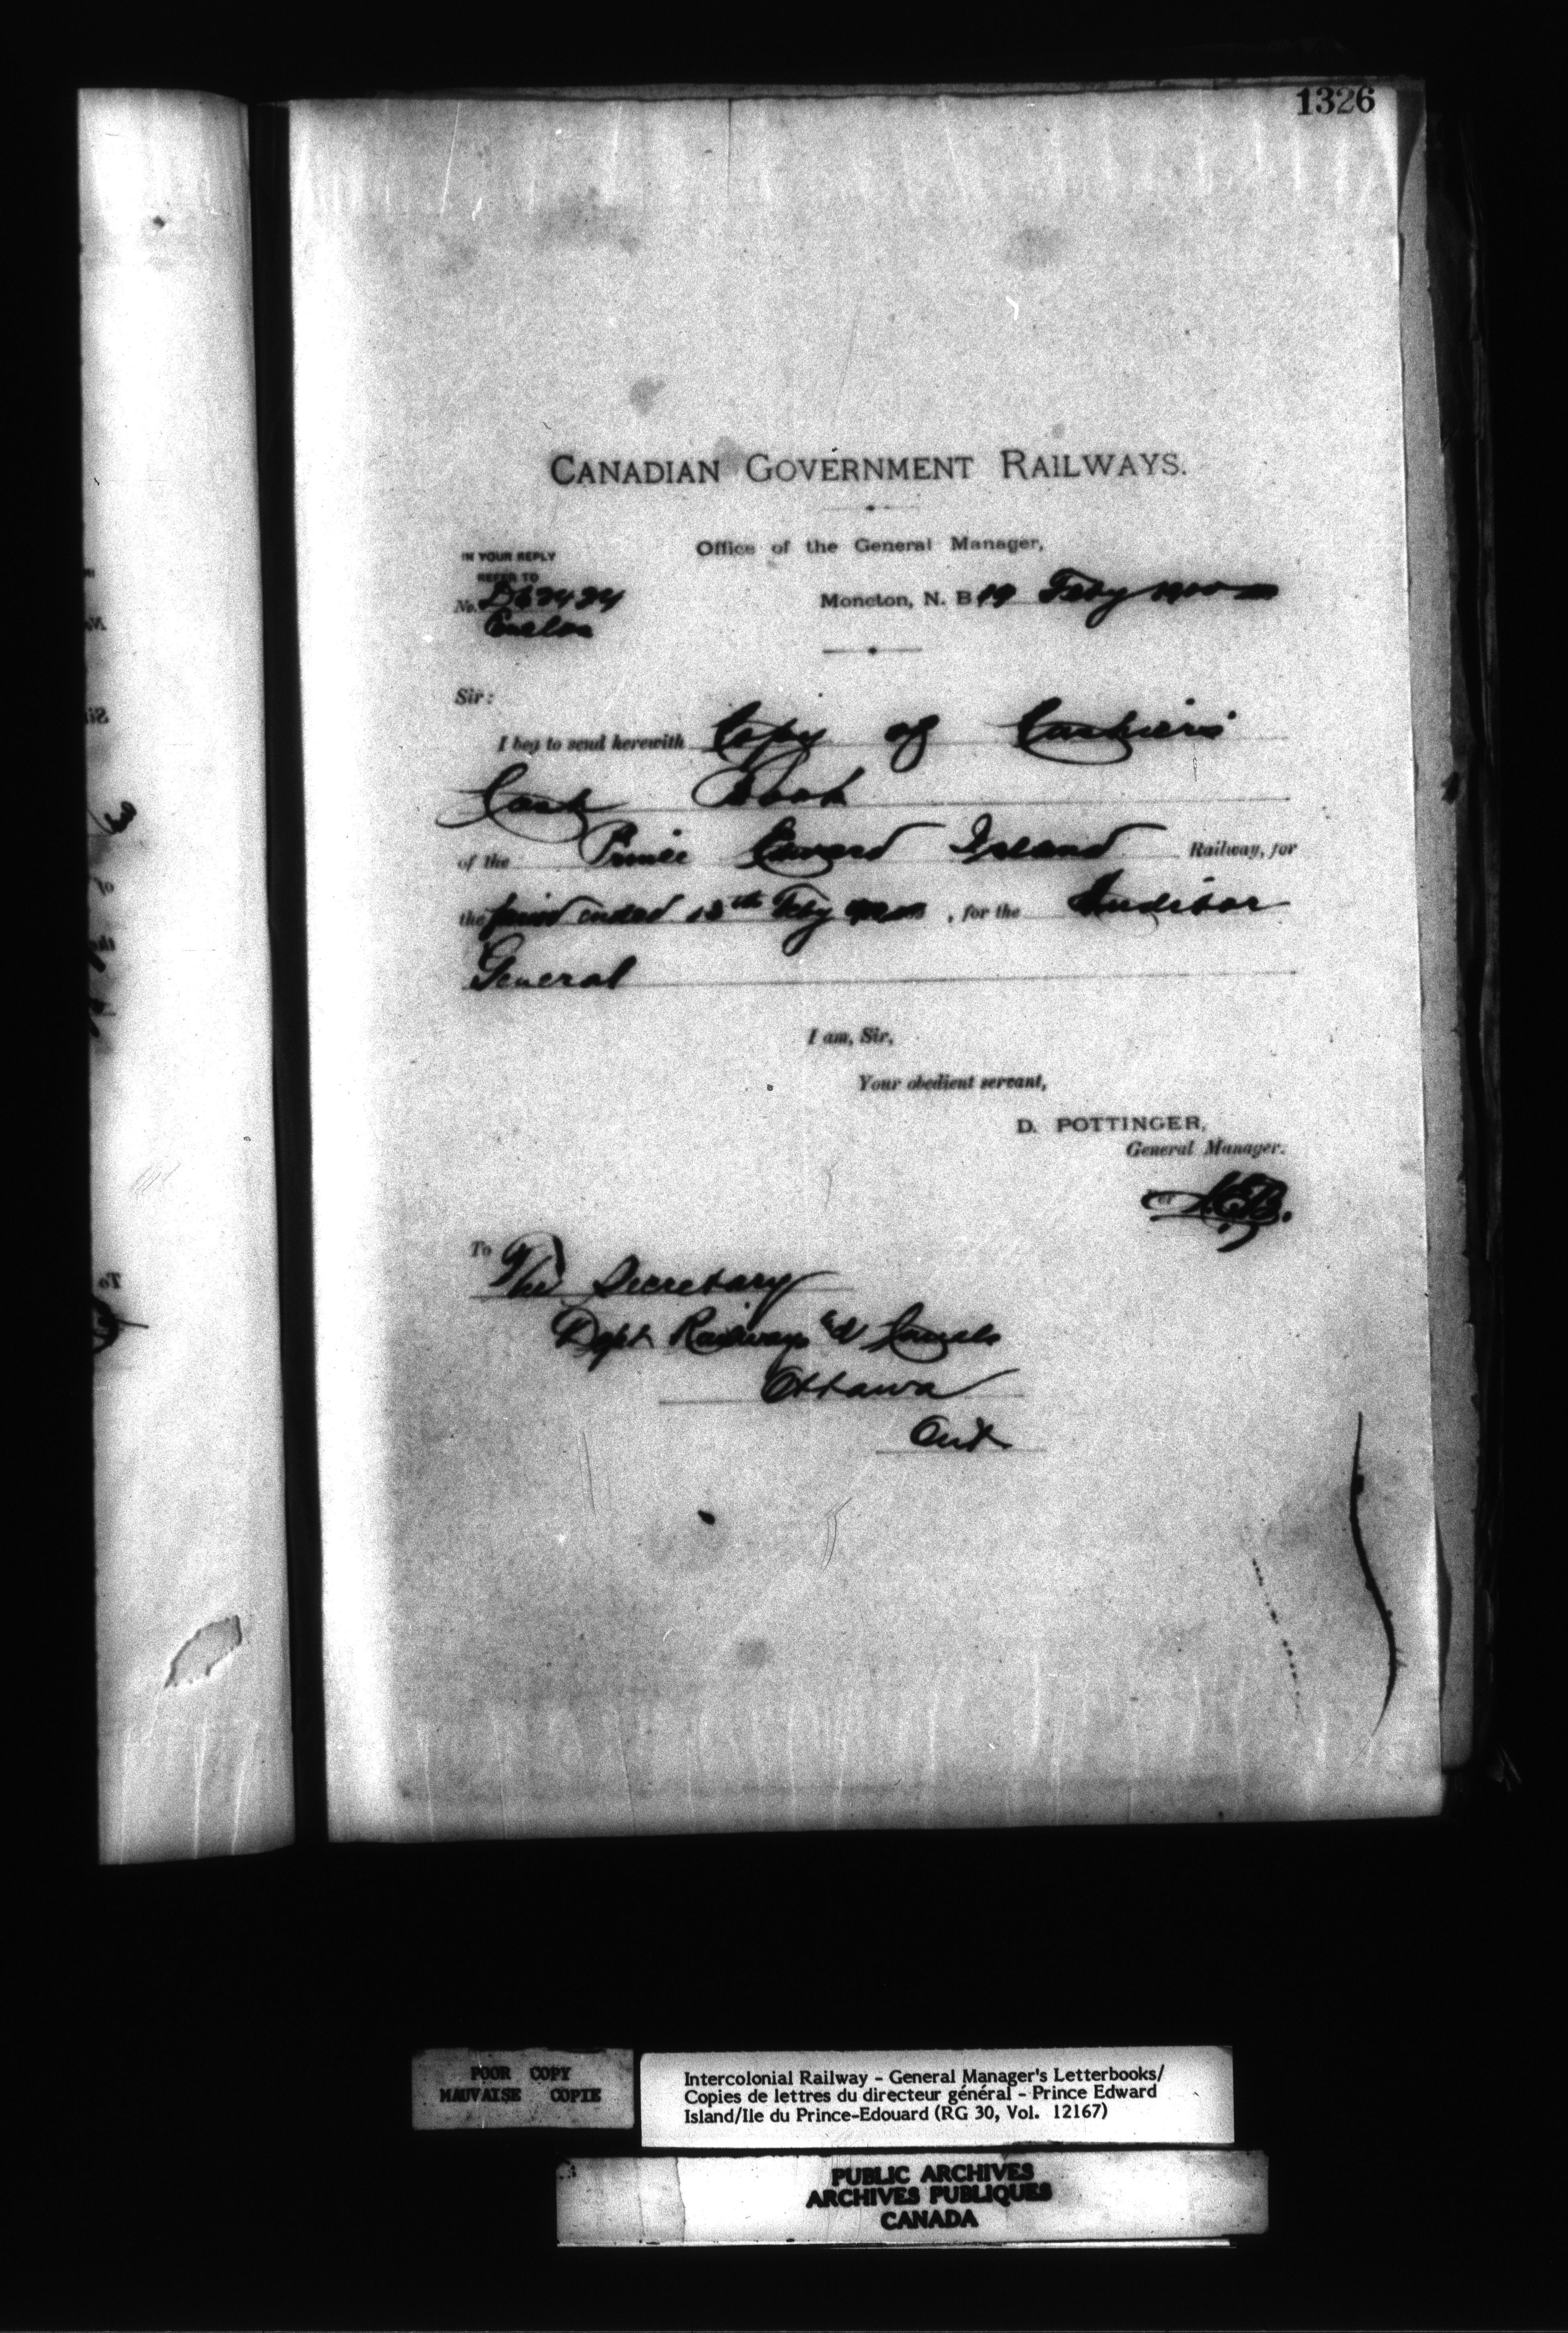 1326
CANADIAN GOVERNMENT RAILWAYS.
Office of the General Manager,
IN YOUR REPLY
REFER TO
No.
Moncton, N. B. 19 Feby 1900
Sir:
I beg to send herewith Copy of Cashier's
Cash Book
of the Prince Edward Island Railway, for
the period ended 15th Feby, for the Auditor
General
I am, Sir,
Your obedient servant,
D. POTTINGER,
General Manager.
Per
To The Secretary
Dept Railways & Canals
Ottawa
Ont
POOR COPY
MAUVAISE COPIE
Intercolonial Railway - General Manager's Letterbooks/
Copies de lettres du directeur général - Prince Edward
Island/Ile du Prince-Edouard (RG 30, Vol. 12167)
PUBLIC ARCHIVES
ARCHIVES PUBLIQUES
CANADA